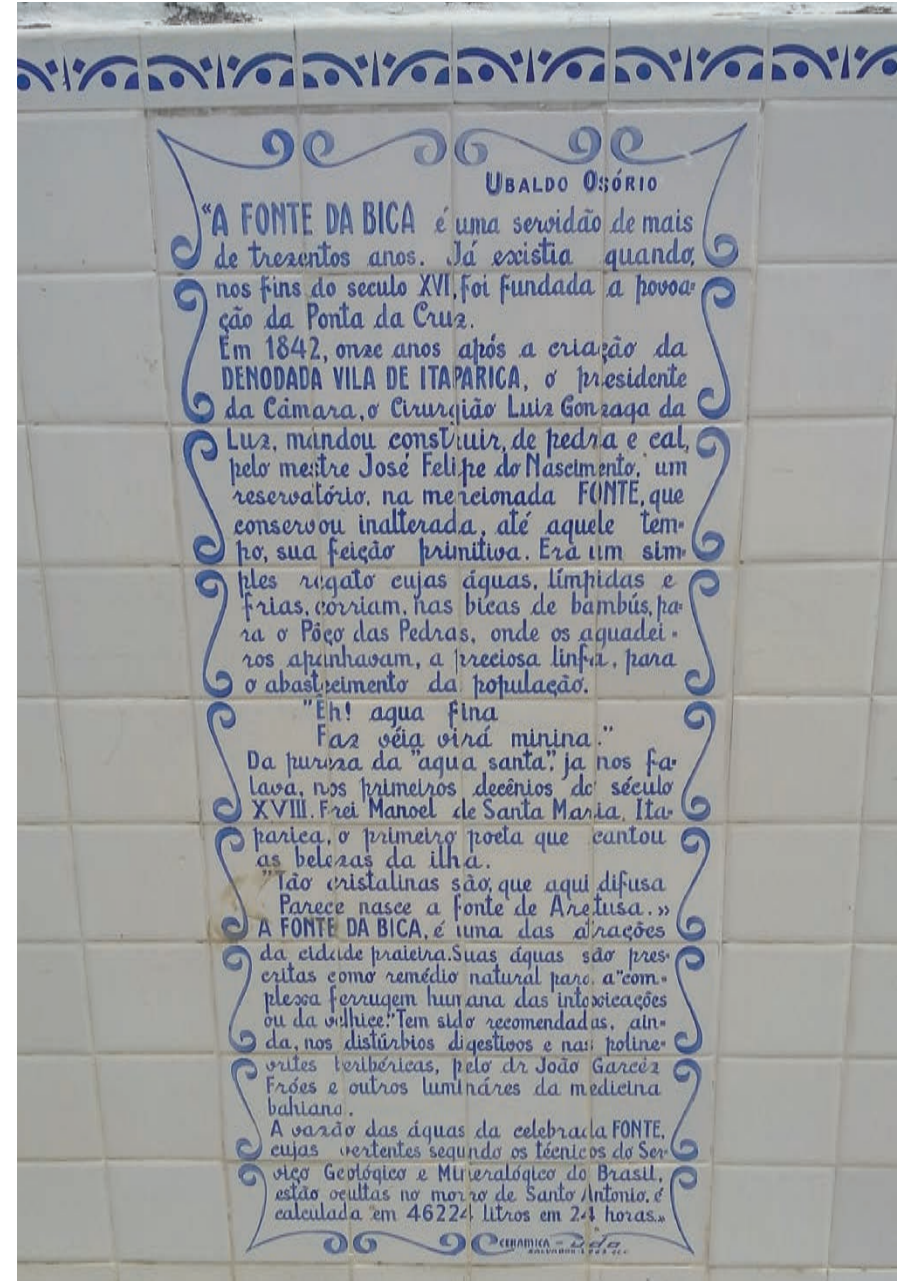 UBALDO OSÓRIO
"A FONTE DA BICA é uma servidão de mais
de trezentos anos. Já existia quando,
nos fins do seculo XVI, foi fundada a povoa-
ção da Ponta da Cruz.
Em 1842, onze anos após a criação da
DENODADA VILA DE ITAPARICA, o presidente
da Câmara, o Cirurgião Luiz Gonzaga da
Luz, mandou construir, de pedra e cal,
pelo mestre José Felipe do Nascimento, um
reservatório, na mencionada FONTE, que
conservou inalterada, até aquele tem-
po, sua feição primitiva. Era um sim-
ples regato cujas águas, límpidas e
frias, corriam, nas bicas de bambús, pa-
ra o Pôço das Pedras, onde os aguadei-
ros apanhavam, a preciosa linfa, para
o abastecimento da população.
"Eh! agua fina
Faz véia virá minina."
Da pureza da "agua santa", ja nos fa-
lava, nos primeiros decênios do século
XVIII. Frei Manoel de Santa Maria, Ita-
parica, o primeiro poeta que cantou
as belezas da ilha.
"Tão cristalinas são, que aqui difusa
Parece nasce a fonte de Aretusa.»
A FONTE DA BICA, é uma das atrações
da cidade praieira. Suas águas são pres-
critas como remédio natural para a "com-
plexa ferrugem humana das intoxicações
ou da velhice." Tem sido recomendadas, ain-
da, nos distúrbios digestivos e nas poline-
vrites beribéricas, pelo dr João Garcêz
Fróes e outros luminàres da medicina
bahiana.
A vazão das águas da celebrada FONTE,
cujas vertentes segundo os técnicos do Ser-
viço Geológico e Mineralógico do Brasil,
estão ocultas no morro de Santo Antonio, é
calculada em 46224 litros em 24 horas.»
CERAMICA - udo
SALVADOR